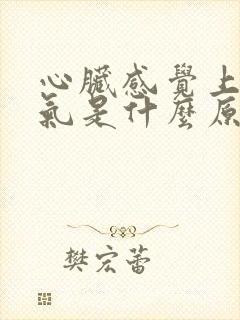 心臟感覺上
氣是什麼原
樊宏蕾